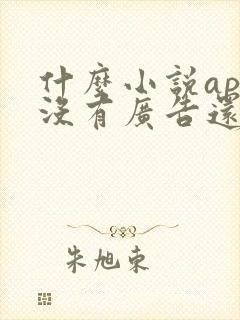 什麼小說ap
沒有廣告還
朱旭東